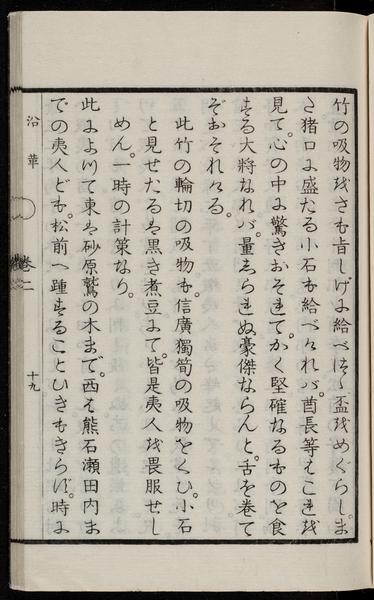 竹の吸物をさも旨しげに給べける盃をめぐらし。ま
た猪口に盛たる小石も給べければ。酋長等もこれを
見て。心の中に驚きおそれて。かく堅確なるものを食
する大將なれば。量しられぬ豪傑ならんと。舌を巻て
ぞおそれける。
此竹の輪切の吸物も。信廣獨筍の吸物をくひ。小石
と見せたるは黒き煮豆にて。皆是夷人を畏服せし
めん。一時の計策なり。
此によつて東は砂原鷲の木まで。西は熊石瀬田内ま
での夷人ども。松前へ踵することひきもきらず。時に
沿革
巻二
十九